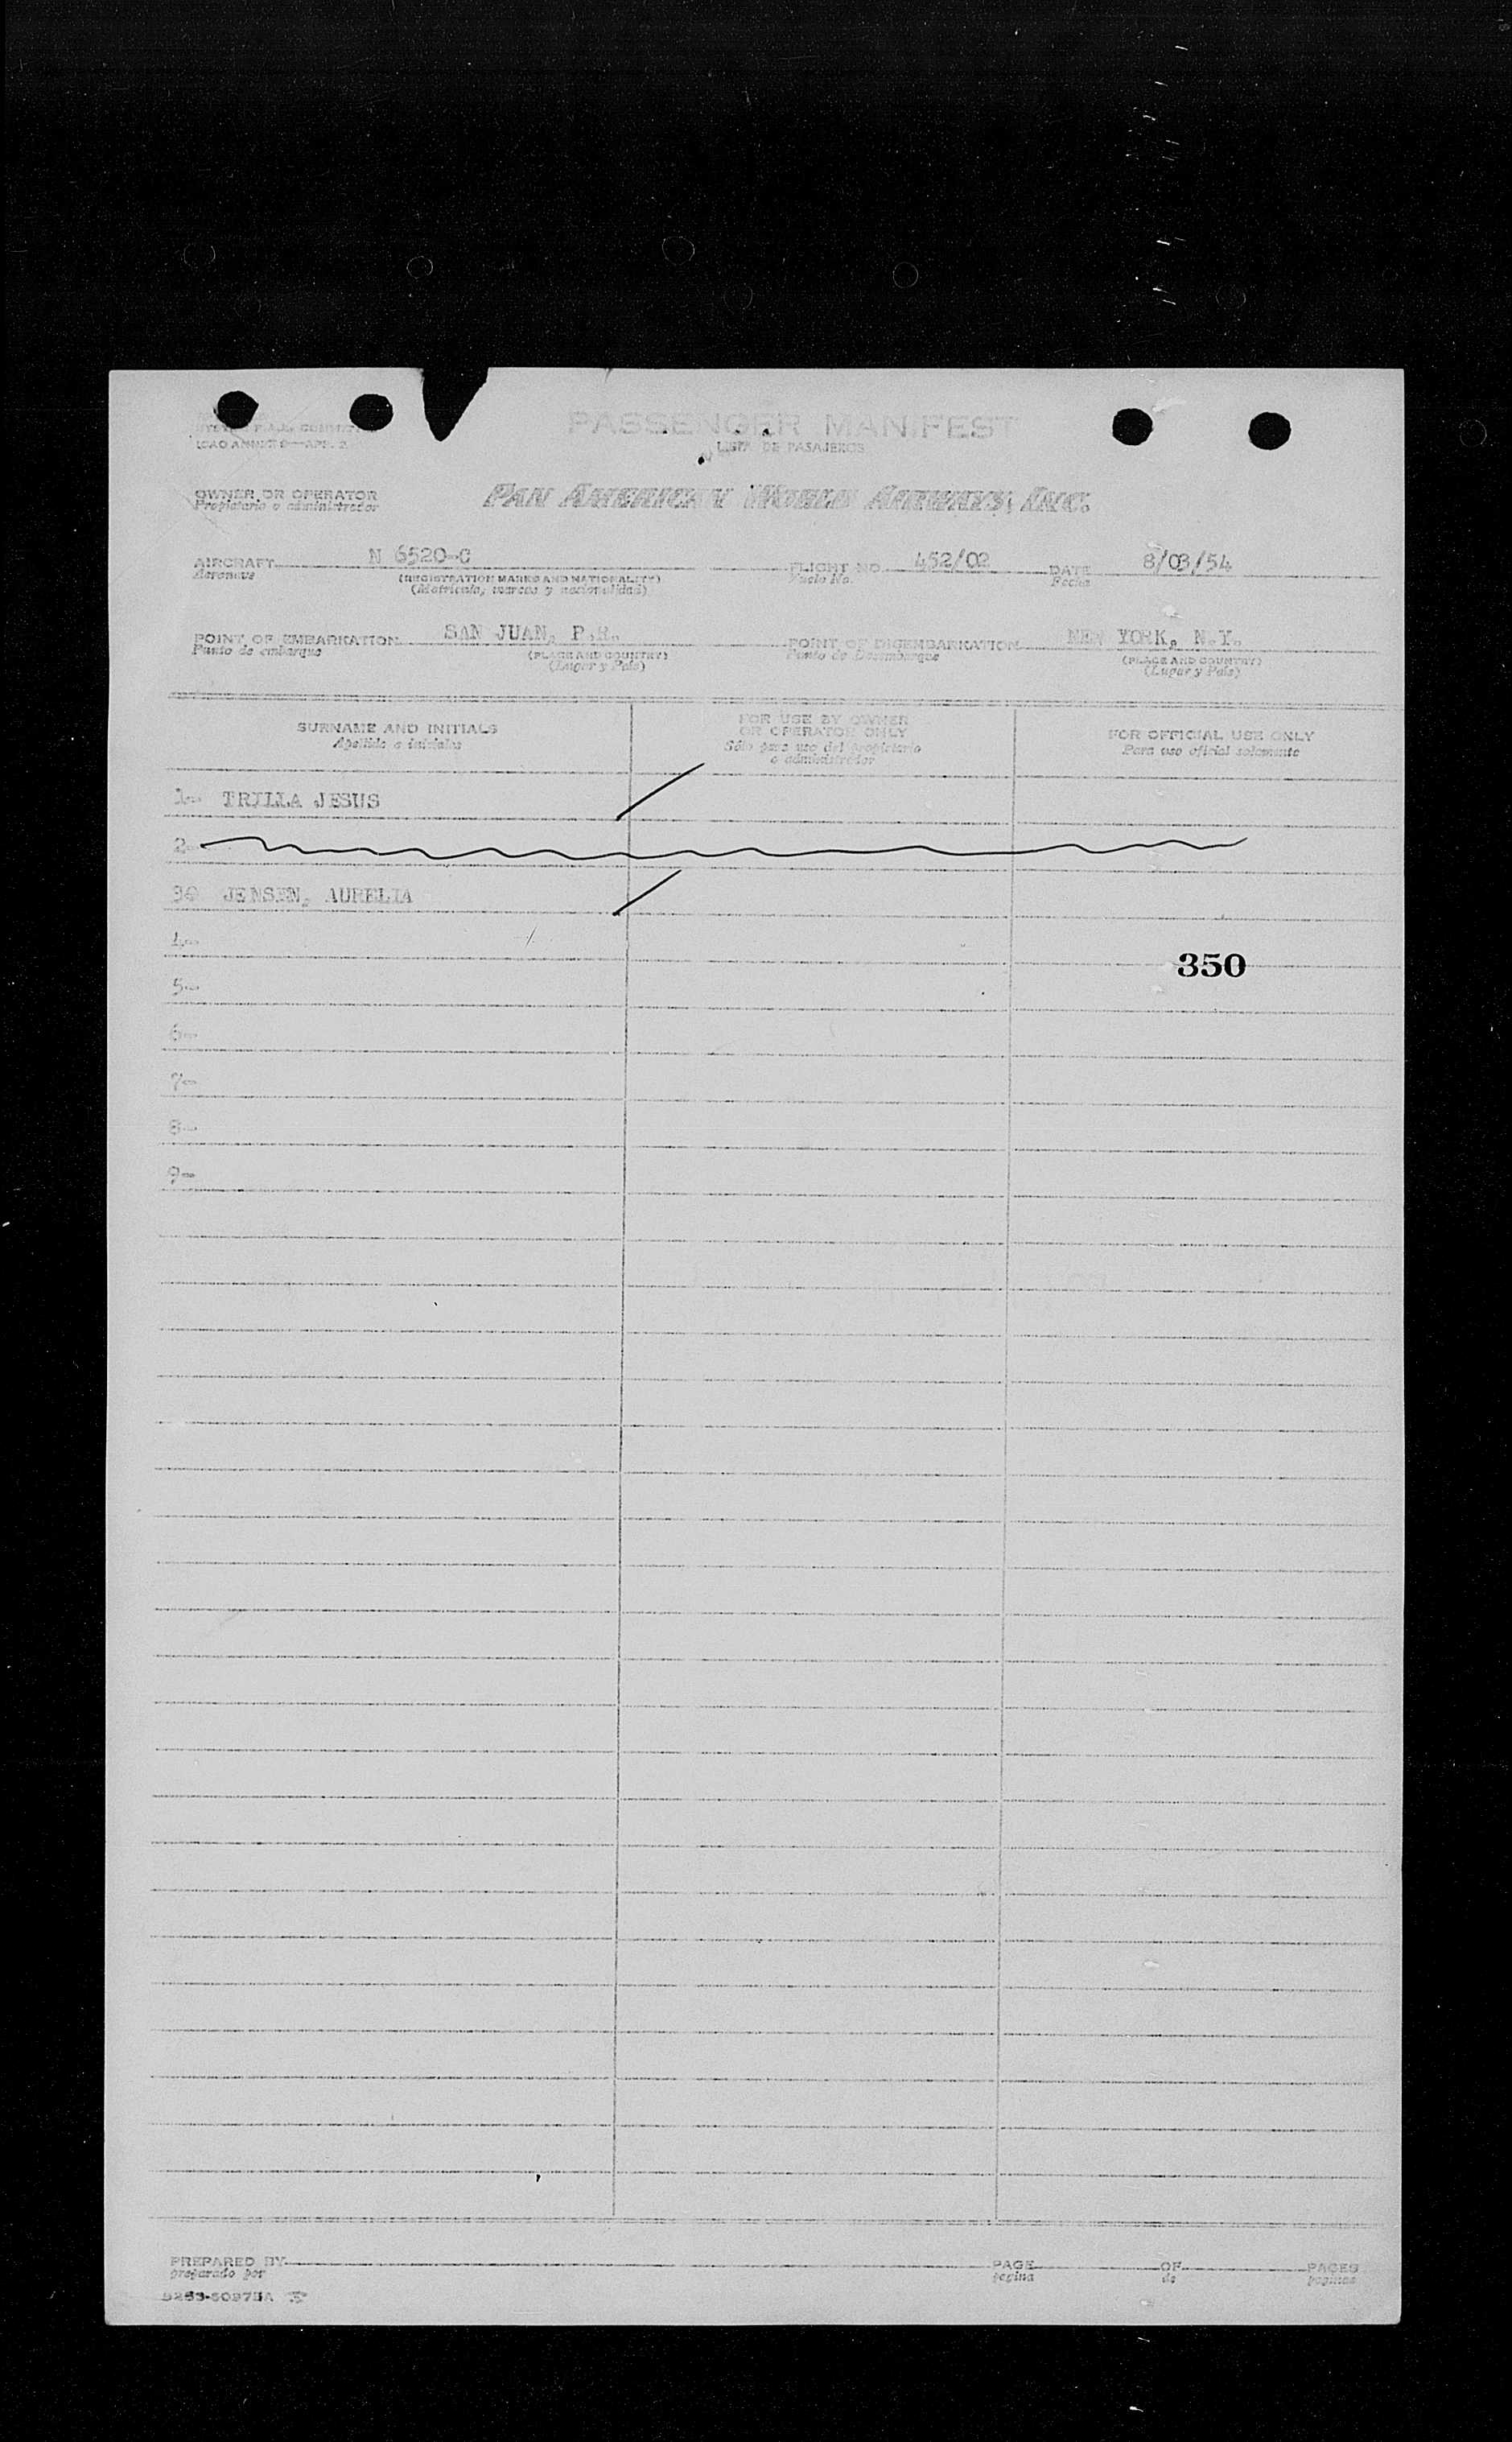 PASSENGER MANIFEST
LISTA DE PASAJEROS
ICAO ANNEX 9—APP. 2
OWNER OR OPERATOR
Propietario o administrador
PAN AMERICAN WORLD AIRWAYS, INC.
AIRCRAFT N 6520-C FLIGHT NO. 452/02 DATE 8/03/54
Aeronave (REGISTRATION MARKS AND NATIONALITY) Vuelo No. Fecha
(Matrícula, marcas y nacionalidad)
POINT OF EMBARKATION SAN JUAN, P.R. POINT OF DISEMBARKATION NEW YORK, N.Y.
Punto de embarque (PLACE AND COUNTRY) Punto de Desembarque (PLACE AND COUNTRY)
(Lugar y País) (Lugar y País)
SURNAME AND INITIALS FOR USE BY OWNER OR OPERATOR ONLY FOR OFFICIAL USE ONLY
Apellido e iniciales Sólo para uso del propietario o administrador Para uso oficial solamente
1- TRILLA JESUS
2-
3- JENSEN, AURELIA
4-
350
5-
6-
7-
8-
9-
PREPARED BY PAGE OF PAGES
preparado por pagina de paginas